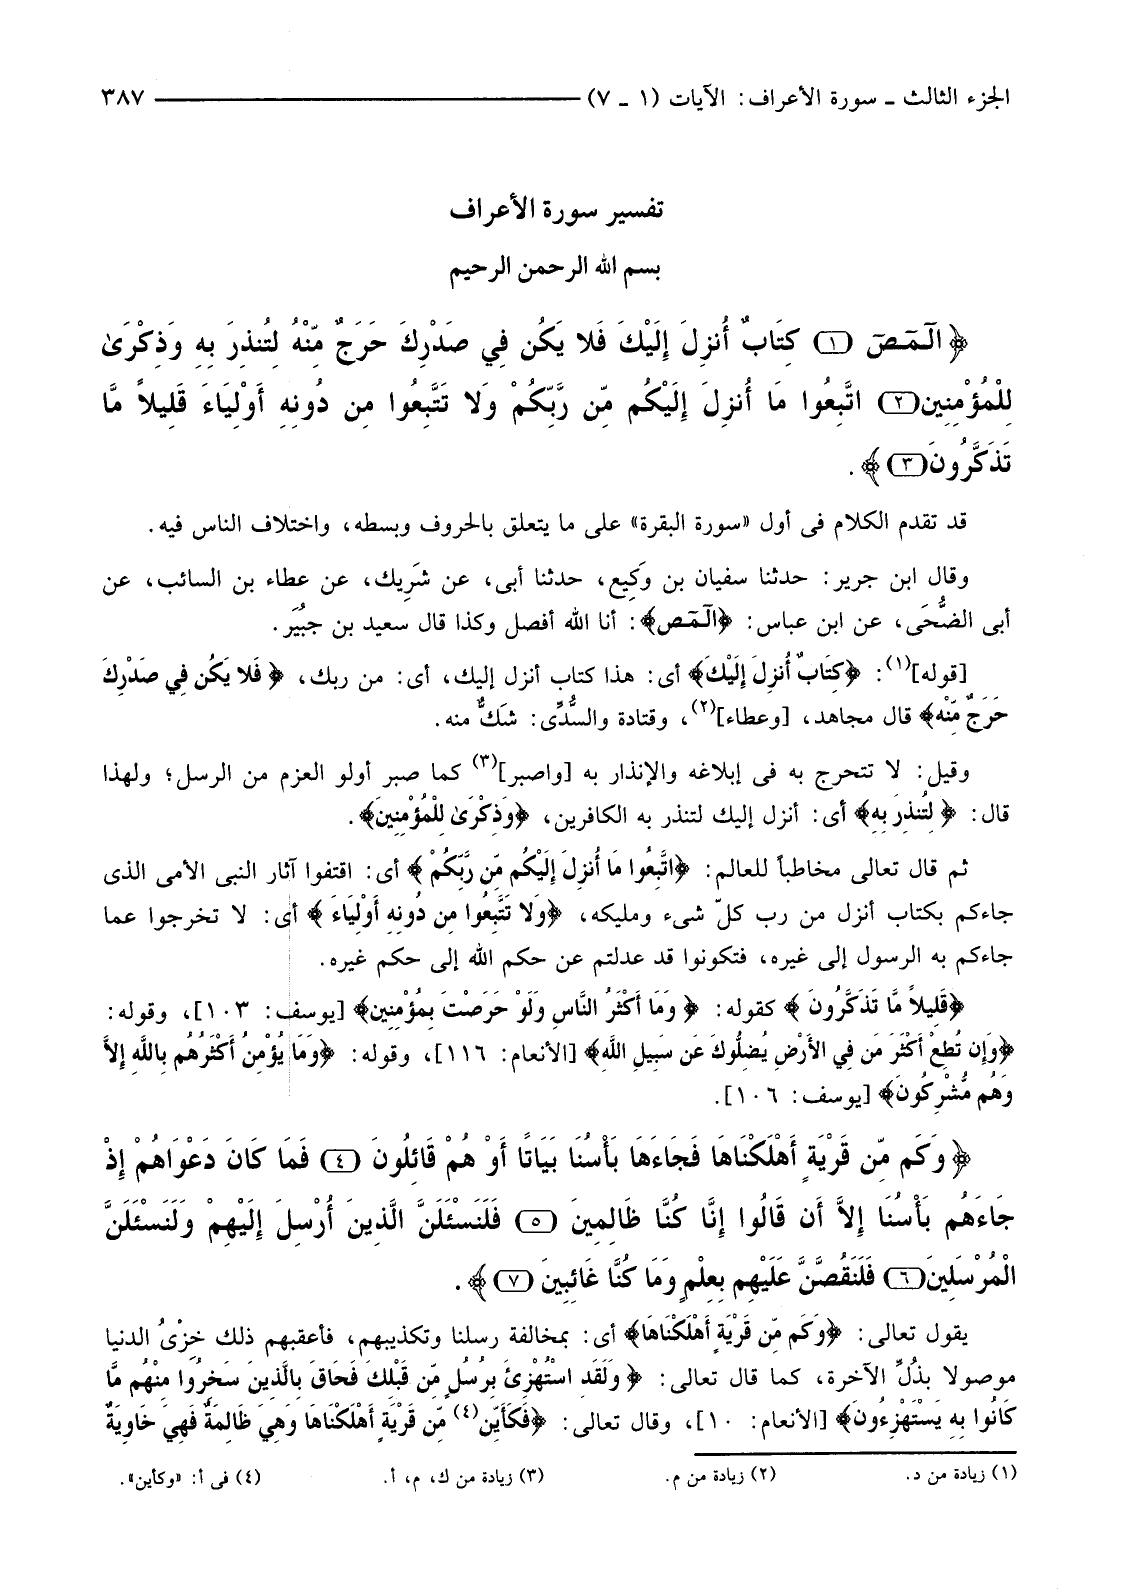 الجزء الثالث ـ سورة الأعراف: الآيات (١ ـ ٧) ــــــــــــــــــــــــ ٣٨٧
تفسير سورة الأعراف
بسم الله الرحمن الرحيم
﴿ الٓمٓصٓ (١) كِتَابٌ أُنزِلَ إِلَيْكَ فَلا يَكُن فِي صَدْرِكَ حَرَجٌ مِّنْهُ لِتُنذِرَ بِهِ وَذِكْرَىٰ
لِلْمُؤْمِنِينَ (٢) اتَّبِعُوا مَا أُنزِلَ إِلَيْكُم مِّن رَّبِّكُمْ وَلا تَتَّبِعُوا مِن دُونِهِ أَوْلِيَاءَ قَلِيلاً مَّا
تَذَكَّرُونَ (٣) ﴾ .
قد تقدم الكلام فى أول «سورة البقرة» على ما يتعلق بالحروف وبسطه، واختلاف الناس فيه.
وقال ابن جرير: حدثنا سفيان بن وَكِيع، حدثنا أبى، عن شَرِيك، عن عطاء بن السائب، عن
أبى الضُّحَى، عن ابن عباس: ﴿الٓمٓصٓ﴾: أنا الله أفصل وكذا قال سعيد بن جبُيَر.
[قوله](١): ﴿كِتَابٌ أُنزِلَ إِلَيْكَ﴾ أى: هذا كتاب أنزل إليك، أى: من ربك، ﴿ فَلا يَكُن فِي صَدْرِكَ
حَرَجٌ مِّنْه﴾ قال مجاهد، [وعطاء](٢)، وقتادة والسُّدِّى: شكٌّ منه.
وقيل: لا تتحرج به فى إبلاغه والإنذار به [واصبر](٣) كما صبر أولو العزم من الرسل؛ ولهذا
قال: ﴿ لِتُنذِرَ بِهِ﴾ أى: أنزل إليك لتنذر به الكافرين، ﴿وَذِكْرَىٰ لِلْمُؤْمِنِينَ﴾.
ثم قال تعالى مخاطباً للعالم: ﴿اتَّبِعُوا مَا أُنزِلَ إِلَيْكُم مِّن رَّبِّكُمْ ﴾ أى: اقتفوا آثار النبى الأمى الذى
جاءكم بكتاب أنزل من رب كلّ شىء ومليكه، ﴿وَلا تَتَّبِعُوا مِن دُونِهِ أَوْلِيَاءَ ﴾ أى: لا تخرجوا عما
جاءكم به الرسول إلى غيره، فتكونوا قد عدلتم عن حكم الله إلى حكم غيره.
﴿قَلِيلاً مَّا تَذَكَّرُونَ ﴾ كقوله: ﴿ وَمَا أَكْثَرُ النَّاسِ وَلَوْ حَرَصْتَ بِمُؤْمِنِينَ﴾ [يوسف: ١٠٣]، وقوله:
﴿وَإِن تُطِعْ أَكْثَرَ مَن فِي الأَرْضِ يُضِلُّوكَ عَن سَبِيلِ اللَّهِ﴾ [الأنعام: ١١٦]، وقوله: ﴿وَمَا يُؤْمِنُ أَكْثَرُهُم بِاللَّهِ إِلاَّ
وَهُم مُّشْرِكُونَ﴾ [يوسف: ١٠٦].
﴿ وَكَم مِّن قَرْيَةٍ أَهْلَكْنَاهَا فَجَاءَهَا بَأْسُنَا بَيَاتًا أَوْ هُمْ قَائِلُونَ (٤) فَمَا كَانَ دَعْوَاهُمْ إِذْ
جَاءَهُم بَأْسُنَا إِلاَّ أَن قَالُوا إِنَّا كُنَّا ظَالِمِينَ (٥) فَلَنَسْئَلَنَّ الَّذِينَ أُرْسِلَ إِلَيْهِمْ وَلَنَسْئَلَنَّ
الْمُرْسَلِينَ (٦) فَلَنَقُصَّنَّ عَلَيْهِم بِعِلْمٍ وَمَا كُنَّا غَائِبِينَ (٧) ﴾ .
يقول تعالى: ﴿وَكَم مِّن قَرْيَةٍ أَهْلَكْنَاهَا﴾ أى: بمخالفة رسلنا وتكذيبهم، فأعقبهم ذلك خِزْىُ الدنيا
موصولا بذُلِّ الآخرة، كما قال تعالى: ﴿ وَلَقَدِ اسْتُهْزِئَ بِرُسُلٍ مِّن قَبْلِكَ فَحَاقَ بِالَّذِينَ سَخِرُوا مِنْهُم مَّا
كَانُوا بِهِ يَسْتَهْزِءُونَ﴾ [الأنعام: ١٠]، وقال تعالى: ﴿فَكَأَيِّن(٤) مِّن قَرْيَةٍ أَهْلَكْنَاهَا وَهِيَ ظَالِمَةٌ فَهِيَ خَاوِيَةٌ
(١) زيادة من د. (٢) زيادة من م. (٣) زيادة من ك، م، أ. (٤) فى أ: «وكأين».